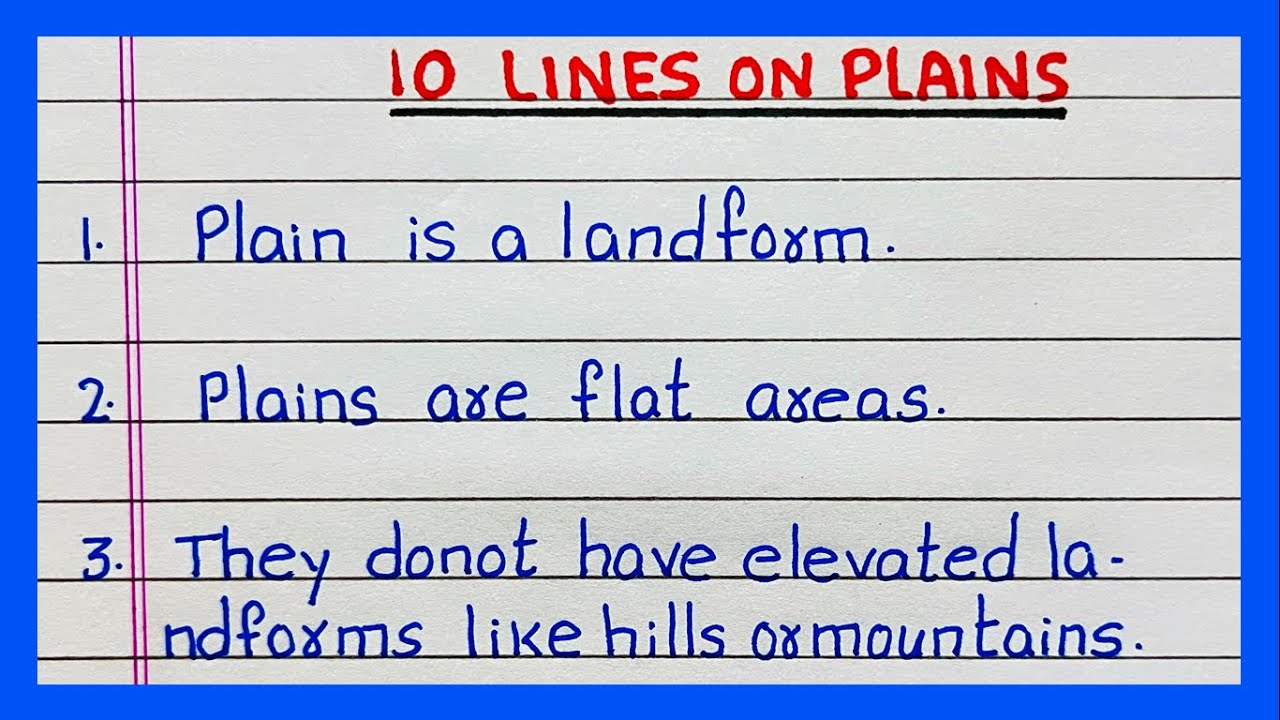 10 LINES ON PLAINS
1. Plain is a landform.
2. Plains are flat areas.
3. They donot have elevated la-
ndforms like hills ormountains.